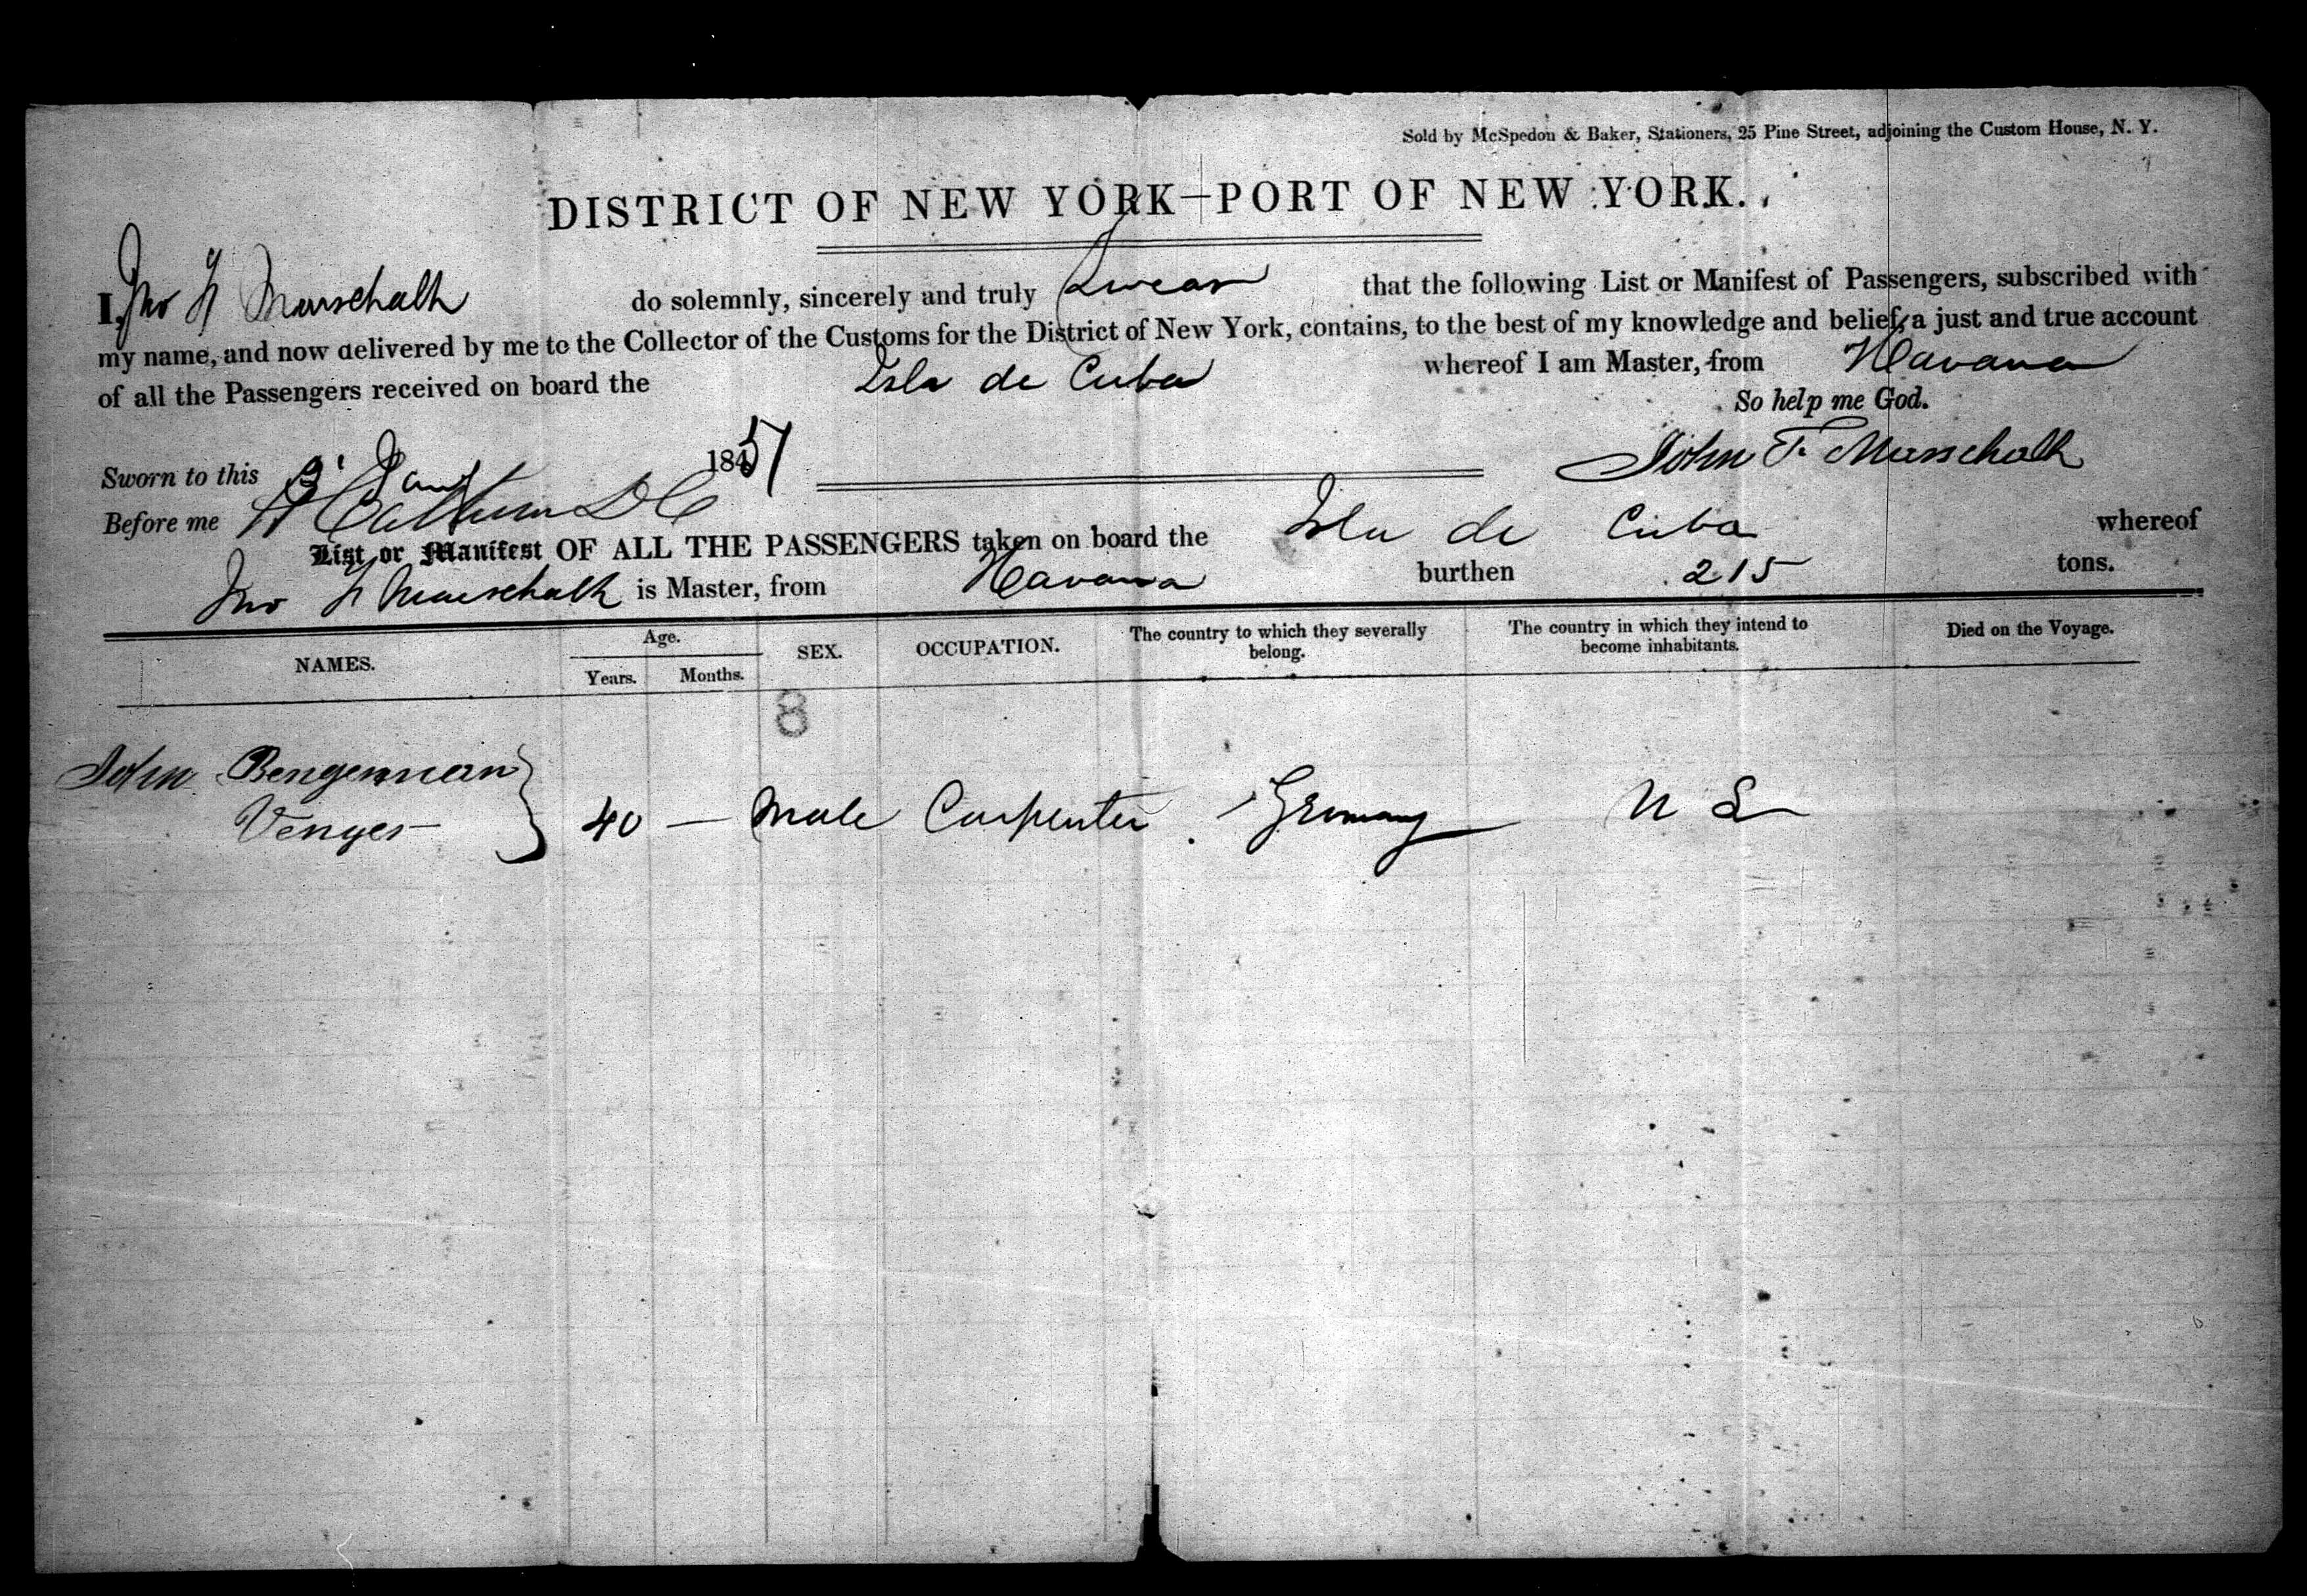 Sold by McSpedon & Baker, Stationers, 25 Pine Street, adjoining the Custom House, N. Y.
DISTRICT OF NEW YORK—PORT OF NEW YORK.
I, Jno F Marschalk do solemnly, sincerely and truly Swear that the following List or Manifest of Passengers, subscribed with
my name, and now delivered by me to the Collector of the Customs for the District of New York, contains, to the best of my knowledge and belief, a just and true account
of all the Passengers received on board the Isla de Cuba whereof I am Master, from Havana
So help me God.
Sworn to this 3 Jany 1851 John F. Marschalk
Before me
List or Manifest OF ALL THE PASSENGERS taken on board the Isla de Cuba whereof
Jno F Marschalk is Master, from Havana burthen 215 tons.
NAMES. Age. Years. Months. SEX. OCCUPATION. The country to which they severally belong. The country in which they intend to become inhabitants. Died on the Voyage.
8
John Bengemman
Venger } 40 — Male Carpenter Germany U S